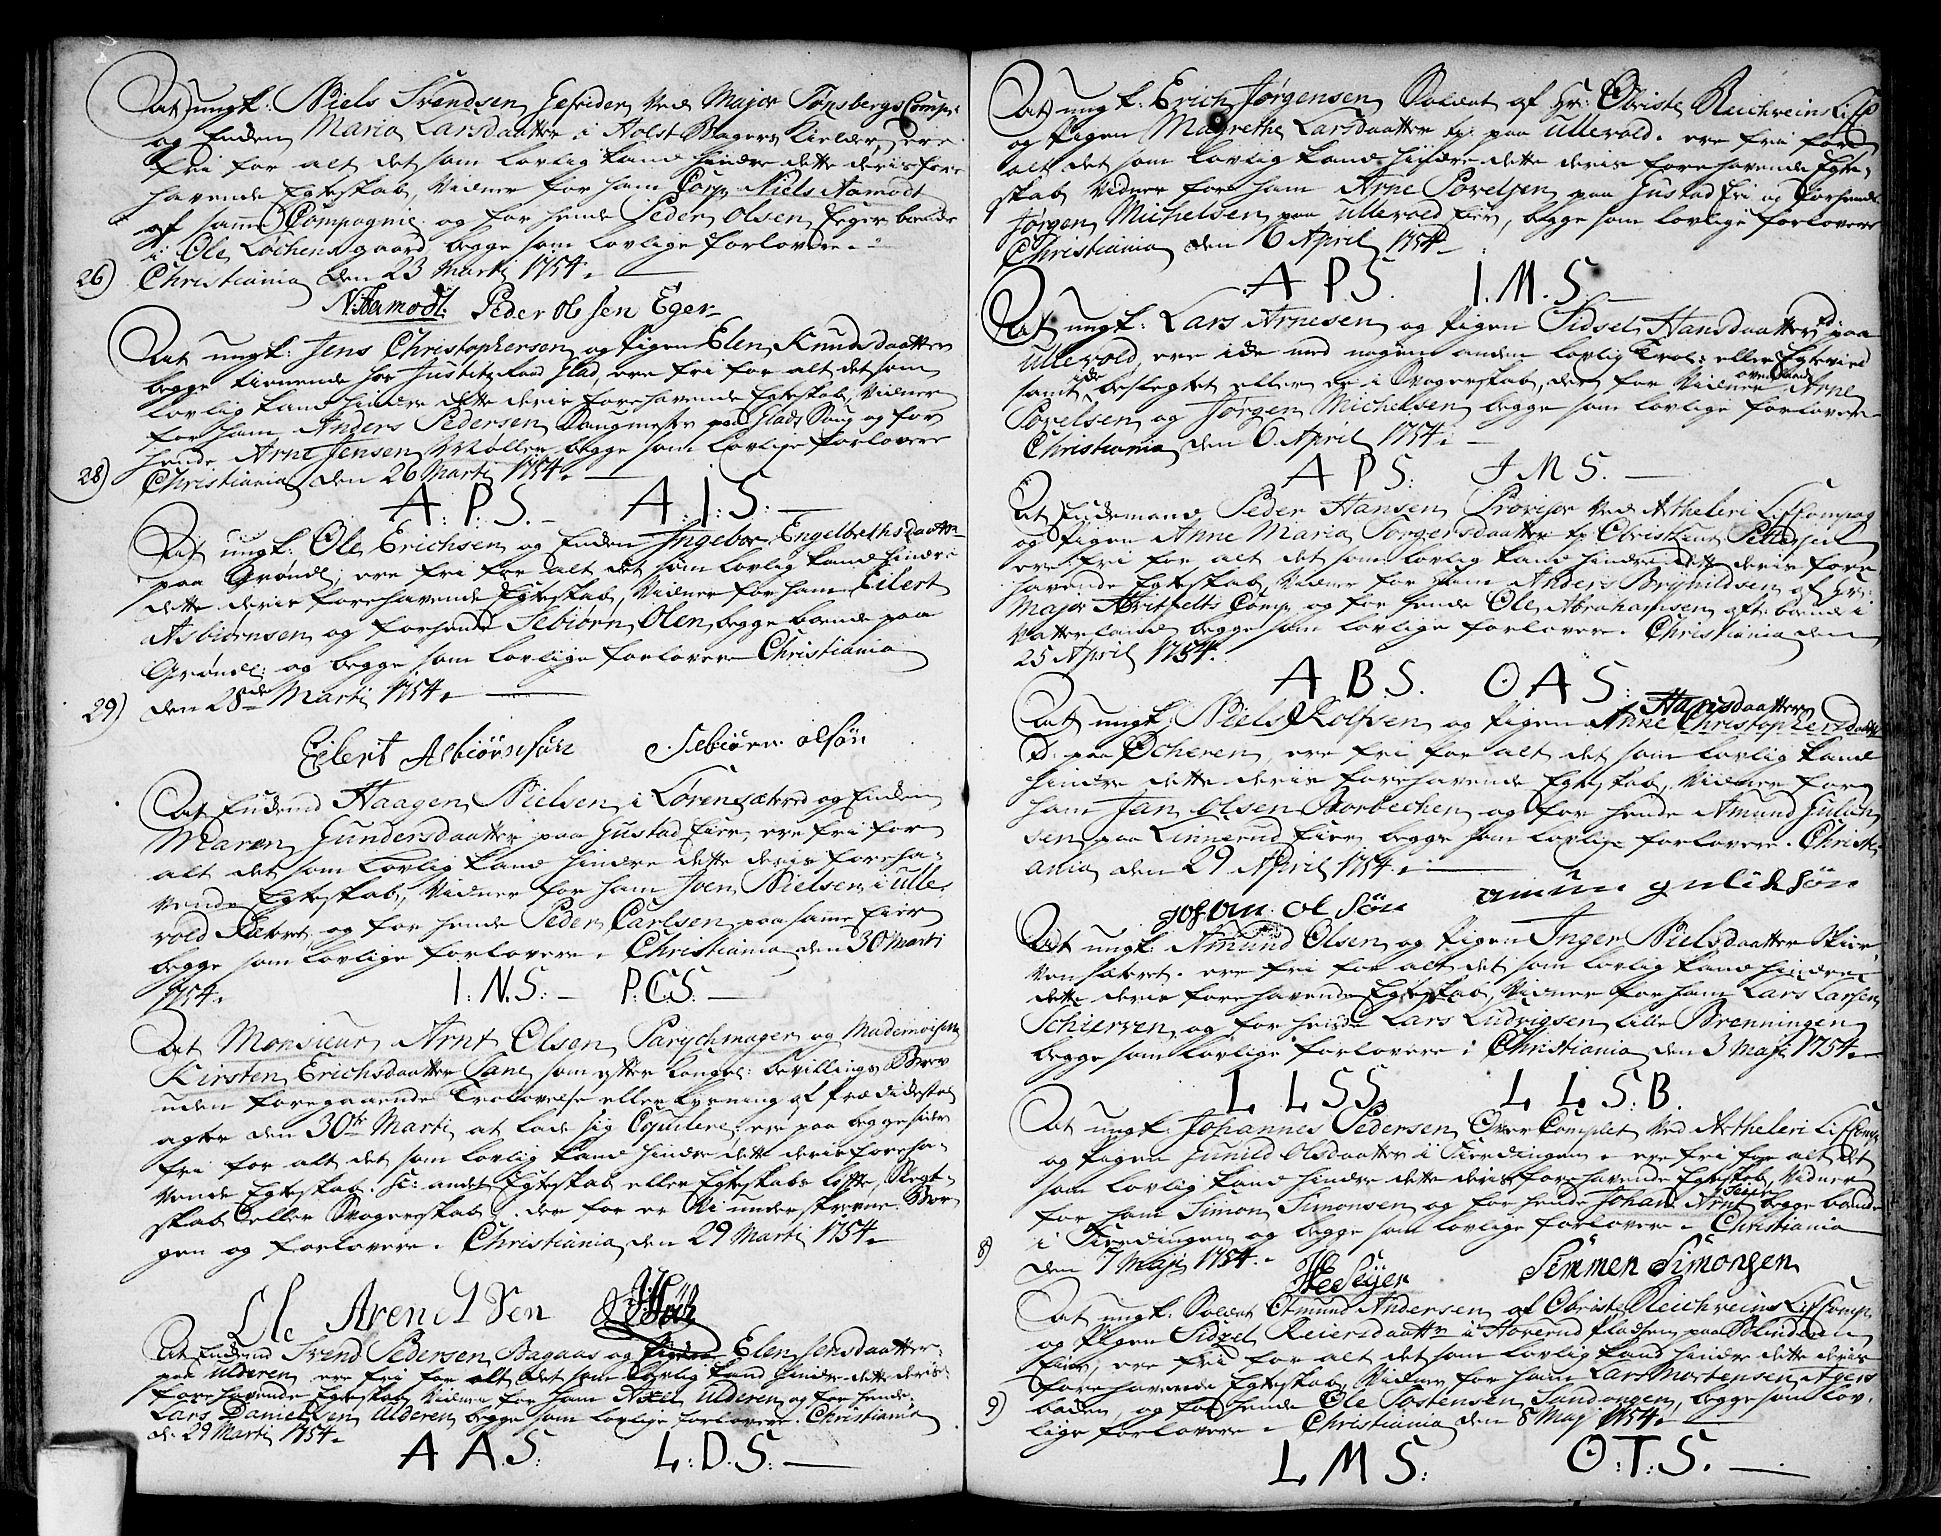 At ungk: Niels Svendsen Gefrider Ved Major Tønsbergs Comp:
og Enden Maria Larsdaatter i Holst Bagers Kielder, ere
fri for alt det som lovlig kand hindre dette deris fore
havende Egteskab, Vidner for ham Corp: Niels Aamodt
af samme Compagnie og for hende Peder Olsen Eger boende
i Ole Lochens gaard begge som lovlige forlovere.
26) Christiania den 23 Marti 1754.
N: Aamodt: Peder olsen Eger
At ungk: Jens Christophersen og Pigen Elen Knudsdaatter
begge tienende hos Justitz Raad Glad, ere fri for alt det som
lovlig kand hindre dette deris forehavende Egteskab, Vidner
for ham Anders Pedersen Saugmester paa Glads Saug og for
hende Arne Jensen Møller begge som lovlige forlovere
28) Christiania den 26 Marti 1754.
A: P: S. A. I: S:
At ungk: Ole Erichsen og Enden Ingebor Engelbrethsdaatter
paa Grøndl: ere fri for alt det som lovlig kand hindre
dette deris forehavende Egteskab, Vidner for ham Eilert
Asbiørnsen og for hende Sebiørn Olsen, begge boende paa
Grøndl: og begge som lovlige forlovere Christiania
29) den 28de Marti 1754.
Eilert Asbiørnsøn Sebiørn olsøn
At Enkemd Haagen Nielsen i Sørensætred og Enden
Maren Gundersdaatter paa Gustad Eier, ere fri for
alt det som lovlig kand hindre dette deris foreha-
vende Egteskab, Vidner for ham Joen Nielsen i Ulle-
vold Sætret og for hende Peder Carlsen paa samme Eier
begge som lovlige forlovere. Christiania den 30 Marti
1754.
I: N. S: P: C. S:
At Monsieur Arnt Olsen Parychmager og Mademoiselle
Kirsten Erichsdaatter Lane, som efter kongel: bevillings Brev
uden foregaaende Trolovelse eller Lysning af Prædikestol
agter den 30te Marti at lade sig Copulere, ere paa begge sider
fri for alt det som lovlig kand hindre dette deris foreha-
vende Egteskab. s: andet Egteskab eller Egteskabs løfte, Slegt-
skab eller Svogerskab. der for er Vi underskrevne Bor-
gen og forlovere. Christiania den 29 Marti 1754.
At Enkemd Svend Pedersen Bagaas og Elen Jensdaatter
paa Ulderen ere fri for alt det som lovlig kand hindre dette deris
forehavende Egteskab Vidner for ham Axel Ulderen og for hende
Lars Danielsen Ulderen begge som lovlige forlovere. Christiania
d: 29 Marti 1754.
A A. S: L: D. S:
At ungk: Erich Jørgensen Soldat af Hr: Obriste Reichweins Lif C
og Pigen Magrethe Larsdaatter paa Ullevold. ere fri for
alt det som lovlig kand hindre dette deris forehavende Egte-
skab Vidner for ham Arne Povelsen paa Gustad Eier og for hende
Jørgen Michelsen paa Ullevold Eier, begge som lovlige forlovere
Christiania den 6 April 1754
A P S. I. M. S.
At ungk: Lars Arnesen og Pigen Sidsel Hansdaatter paa
Ullevold, ere icke med nogen anden lovlig Trol: eller Egteviet
samt icke beslegtet eller ere i Svogerskab, der for Vidner ovenmelte Arne
Povelsen og Jørgen Michelsen begge som lovlige forlovere
Christiania den 6 April 1754.
A P S: J M S.
At Enkemand Peder Hansen Provisor Ved Artheleri Lif Compag
og Pigen Anne Maria Torgersdaatter
ere fri for alt det som lovlig kand hindre dette deris fore
havende Egteskab Vidner for ham Anders Brynildsen af Hr:
Major Hvitfelts Comp og for hende Ole Abrahamsen boende i
Vatterland begge som lovlige forlovere. Christiania den
25 April 1754.
A B. S. O A S:
At ungk: Niels Rolfsen og Pigen Anne Hansdaatter Christophersdaatter
paa Ocheren, ere fri for alt det som lovlig kand
hindre dette deris forehavende Egteskab, Vidner for
ham Jan Olsen Storbechen og for hende Amund Gulich
sen paa Linnerud Eier begge som lovlige forlovere. Christi-
ania den 29 April 1754.
Johan ol søn amun guliksøn
At ungk: Amund Olsen og Pigen Inger Nielsdaatter Skier
vensætret. ere fri for alt det som lovlig kand hindre
dette deris forehavende Egteskab, Vidner for ham Lars Larsen
Schierven og for hende Lars Ludvigsen lille Brenningen
begge som lovlige forlovere. Christiania den 3 Maj 1754.
L L S S. L L S. B.
At ungk: Johannes Pedersen Over Complet Ved Artheleri Lif Comp
og Pigen Gunild Olsdaatter i Fierdingen. ere fri for alt det
som lovlig kand hindre dette deris forehavende Egteskab, Vidner
for ham Simon Simonsen og for hende Johan Arnt Seyer begge boende
i Fierdingen og begge som lovlige forlovere. Christiania
8) den 7 Maj 1754.
Seyer Simmen Simonsen
At ungk: Soldat Omund Andersen af Obriste Reichweins Lif Comp
og Pigen Sidzel Reiersdaatter i Hoverud Pladsen paa Blindern
Eier, ere fri for alt det som lovlig kand hindre dette deris
forehavende Egteskab, Vidner for ham Lars Mortensen Agers
backen, og for hende Ole Tostensen Sandvigen, begge som lov-
9) lige forlovere. Christiania den 8 Maj 1754.
L M S: O. T. S.